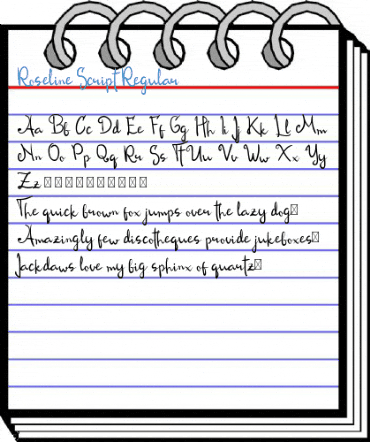 Roseline Script Regular
Aa Bb Cc Dd Ee Ff Gg Hh Ii Jj Kk Ll Mm
Nn Oo Pp Qq Rr Ss Tt Uu Vv Ww Xx Yy
Zz □□□□□□□□□□
The quick brown fox jumps over the lazy dog□
Amazingly few discotheques provide jukeboxes□
Jackdaws love my big sphinx of quartz□